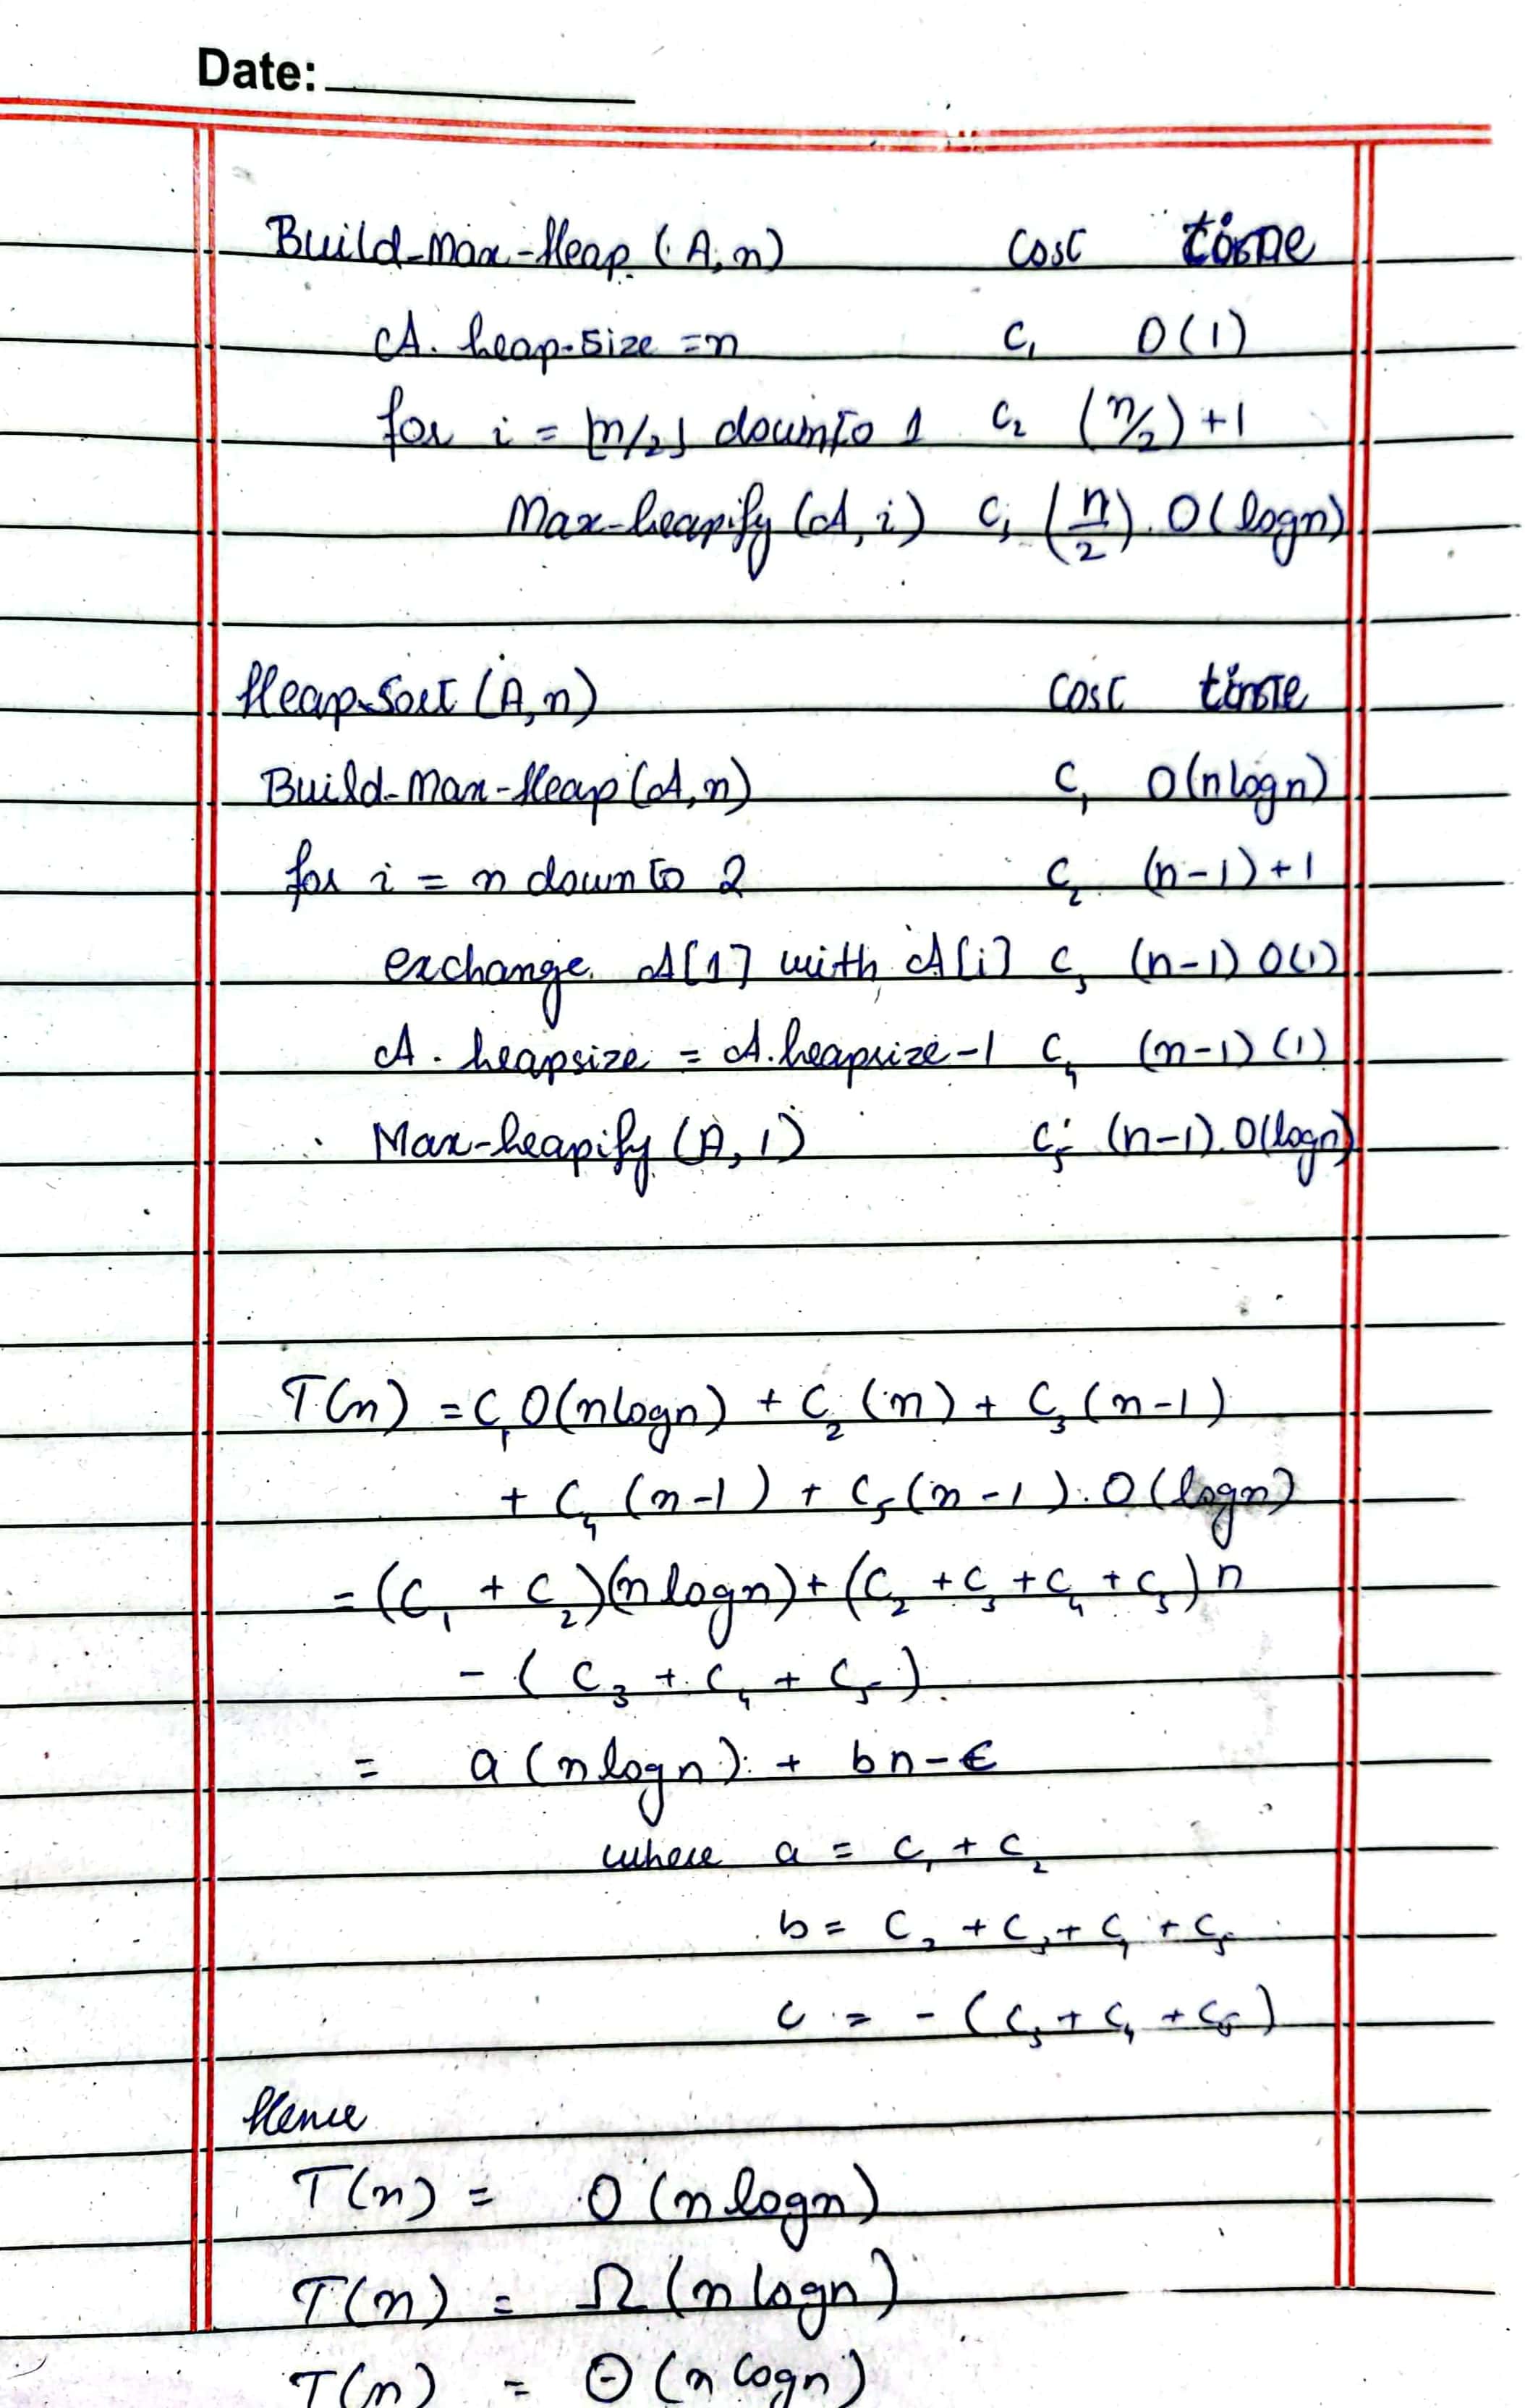 Date:
Build-Max-Heap (A, n) cost time
A. heap-size = n C₁ O(1)
for i = ⌊n/2⌋ down to 1 C₂ (n/2) + 1
Max-heapify (A, i) C₃ (n/2) . O(logn)
Heap-Sort (A, n) cost time
Build-Max-Heap (A, n) C₁ O(nlogn)
for i = n down to 2 C₂ (n-1)+1
exchange A[1] with A[i] C₃ (n-1) O(1)
A. heapsize = A.heapsize-1 C₄ (n-1) (1)
Max-heapify (A, 1) C₅ (n-1). O(logn)
T(n) = C₁ O(nlogn) + C₂ (n) + C₃ (n-1)
+ C₄ (n-1) + C₅ (n-1). O(logn)
= (C₁ + C₂)(nlogn) + (C₂ + C₃ + C₄ + C₅) n
- (C₃ + C₄ + C₅).
= a (nlogn) + bn - c
where a = C₁ + C₂
b = C₂ + C₃ + C₄ + C₅
c = - (C₃ + C₄ + C₅)
Hence
T(n) = O (nlogn)
T(n) = Ω (nlogn)
T(n) = Θ (nlogn)